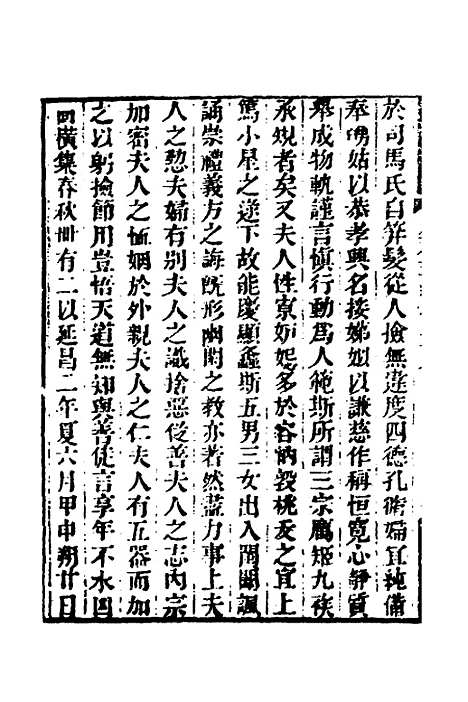 於司馬氏自笄髮從人撿無違度四德孔俻婦宜純備
奉嗚姑以恭孝興名接娣姒以謙慈作稱恒寬心靜質
舉成物軌謹言慎行動爲人範斯所謂三宗厲矩九族
承規者矣又夫人性寡妒娼多於容納敦桃夭之宜上
篤小星之逮下故能慶顯螽斯五男三女出入閨闈諷
誦崇禮義方之誨旣形幽閑之教亦著然蓋力事上夫
人之懃夫婦有別夫人之識捨惡從善夫人之志內宗
加密夫人之恤姻於外親夫人之仁夫人有五器而加
之以躬撿節用豈悟天道無知與善徒言享年不永四
凶橫集春秋卌有二以延昌二年夏六月甲申朔廿日